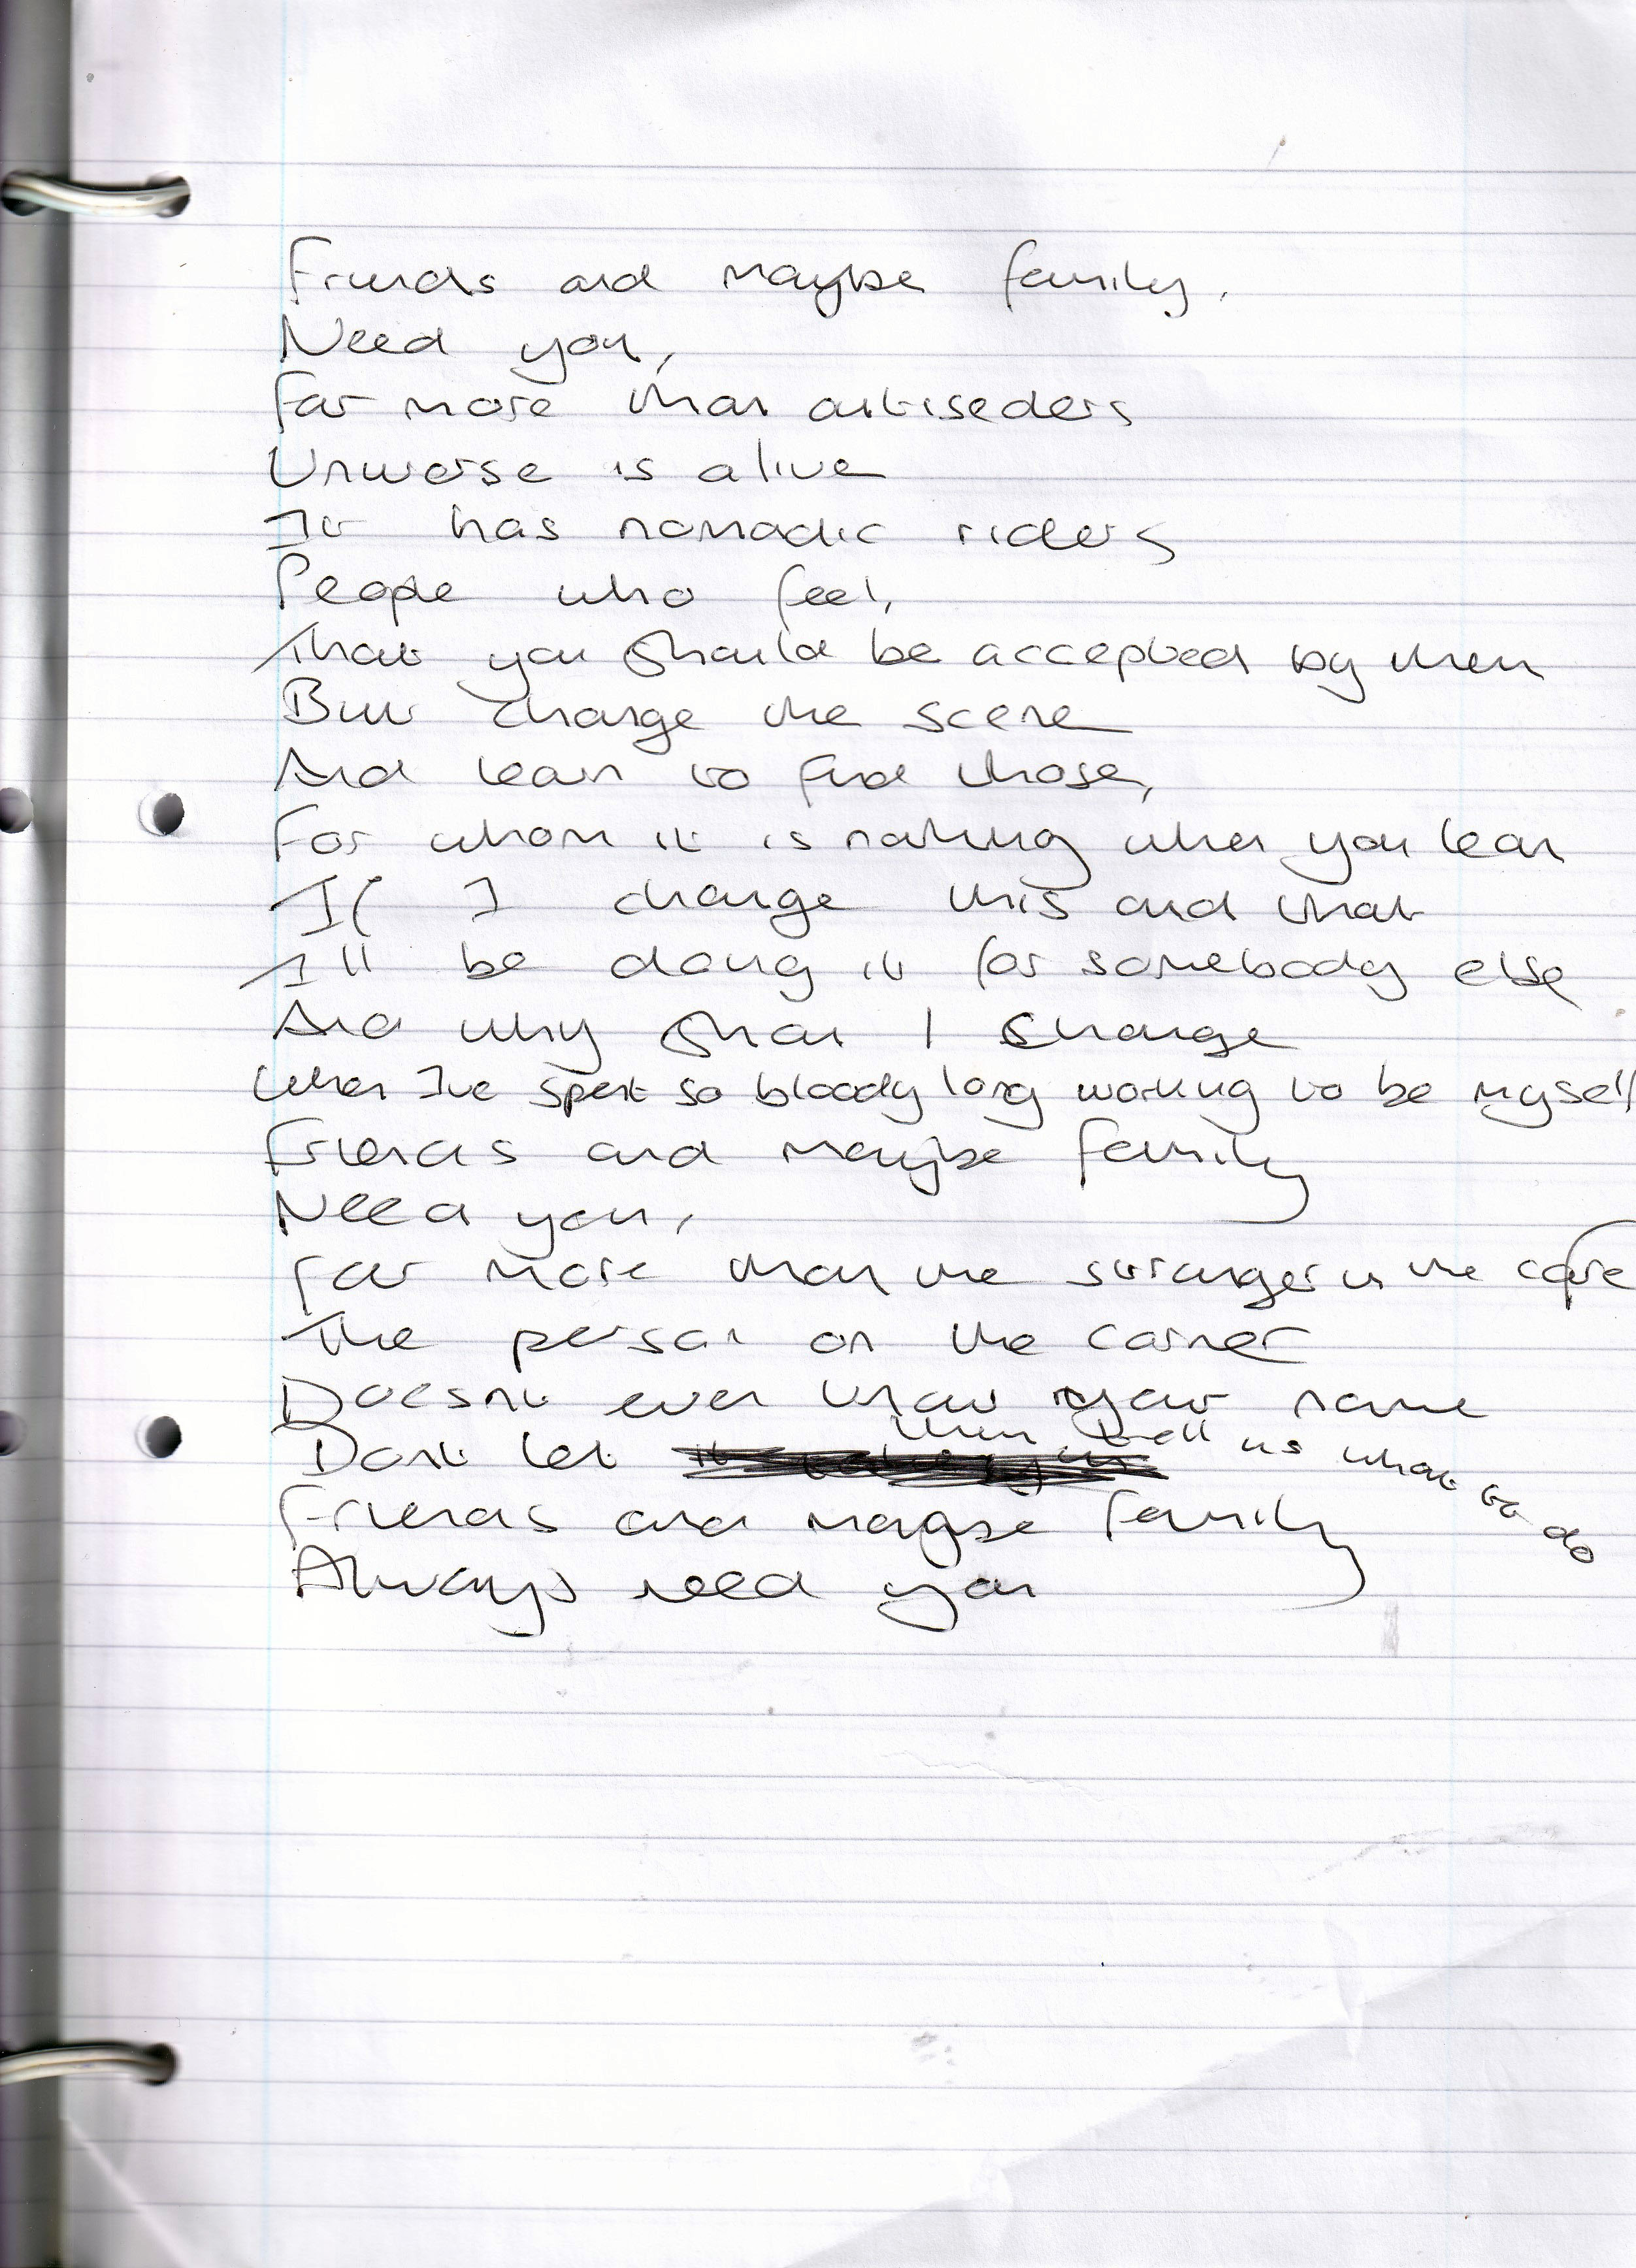 Friends and maybe family,
Need you,
Far more than outiseders
Universe is alive
It has nomadic riders
People who feel,
That you should be accepted by them
But change the scene
And learn to find those,
For whom it is nothing when you lean
If I change this and that
I'll be doing it for somebody else
And why shan I change
When I've spent so bloody long working to be myself
Friends and maybe family
Need you,
Far more than the stranger in the cafe
The person on the corner
Doesnt even know your name
Dont let them tell us what to do
Friends and maybe family
Always need you